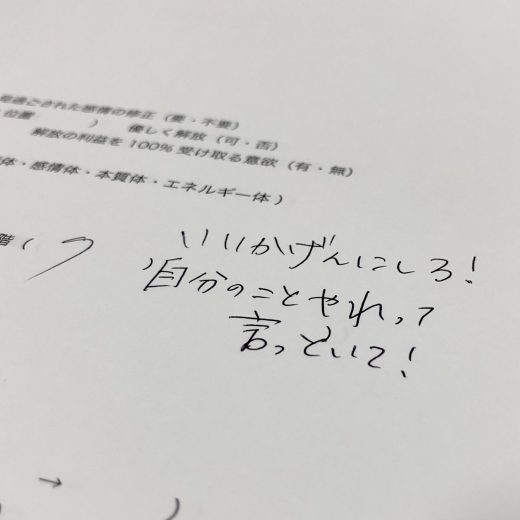 過ごされた感情の修正（要・不要）
位置　　　　）　優しく解放（可・否）
解放の利益を100%受け取る意欲（有・無）
体・感情体・本質体・エネルギー体）
階（　7
いいかげんにしろ！
自分のことやれって
言っといて！
→
）